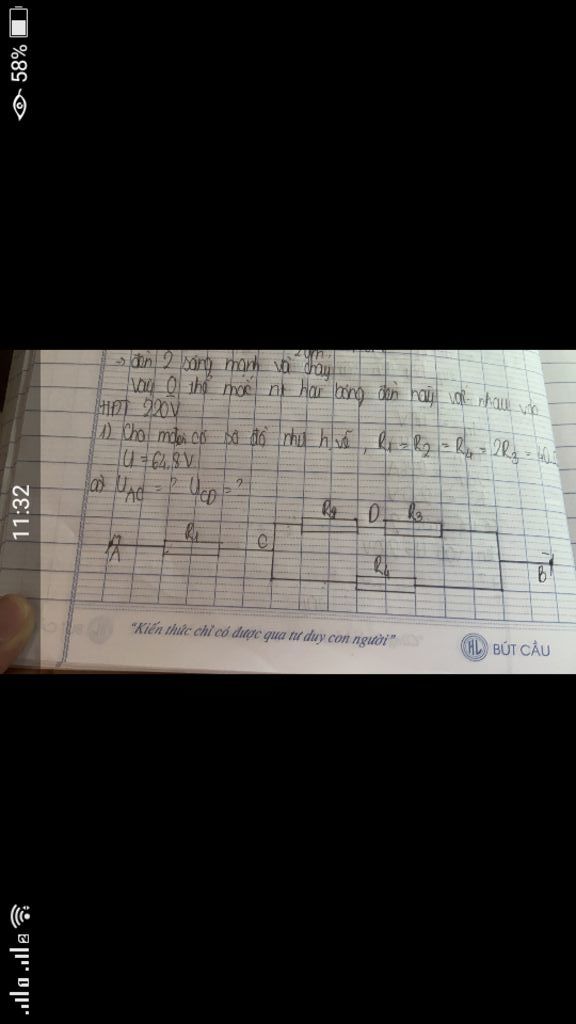 58%
11:32
→ đèn 2 sáng mạnh và cháy
vậy 0 thể mắc nt hai bóng đèn này với nhau vào
HĐT 220V
1) Cho mđ có sơ đồ như h.vẽ, R1 = R2 = R4 = 2R3 =
U = 64,8V
a) UAC = ? UCD = ?
R2 D R3
A R1 C
R4
B
"Kiến thức chỉ có được qua tư duy con người"
HL BÚT CẦU